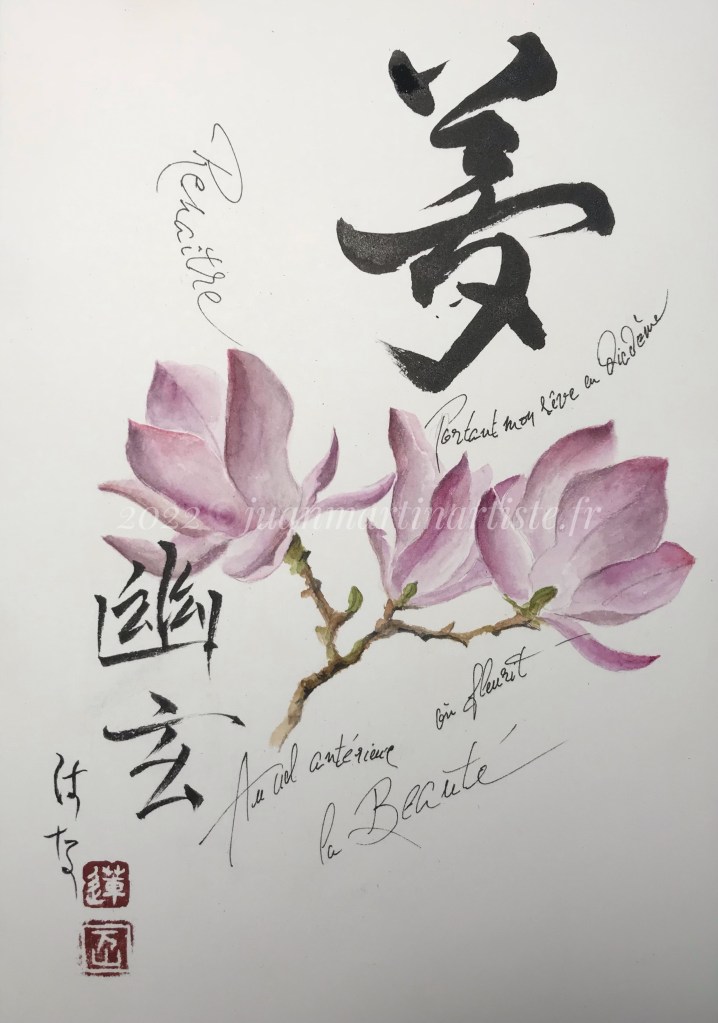 夢
Renaître
Portant mon rêve en Diadème
2022 © juanmartinartiste.fr
幽玄
Au ciel antérieur où fleurit
la Beauté
蓮